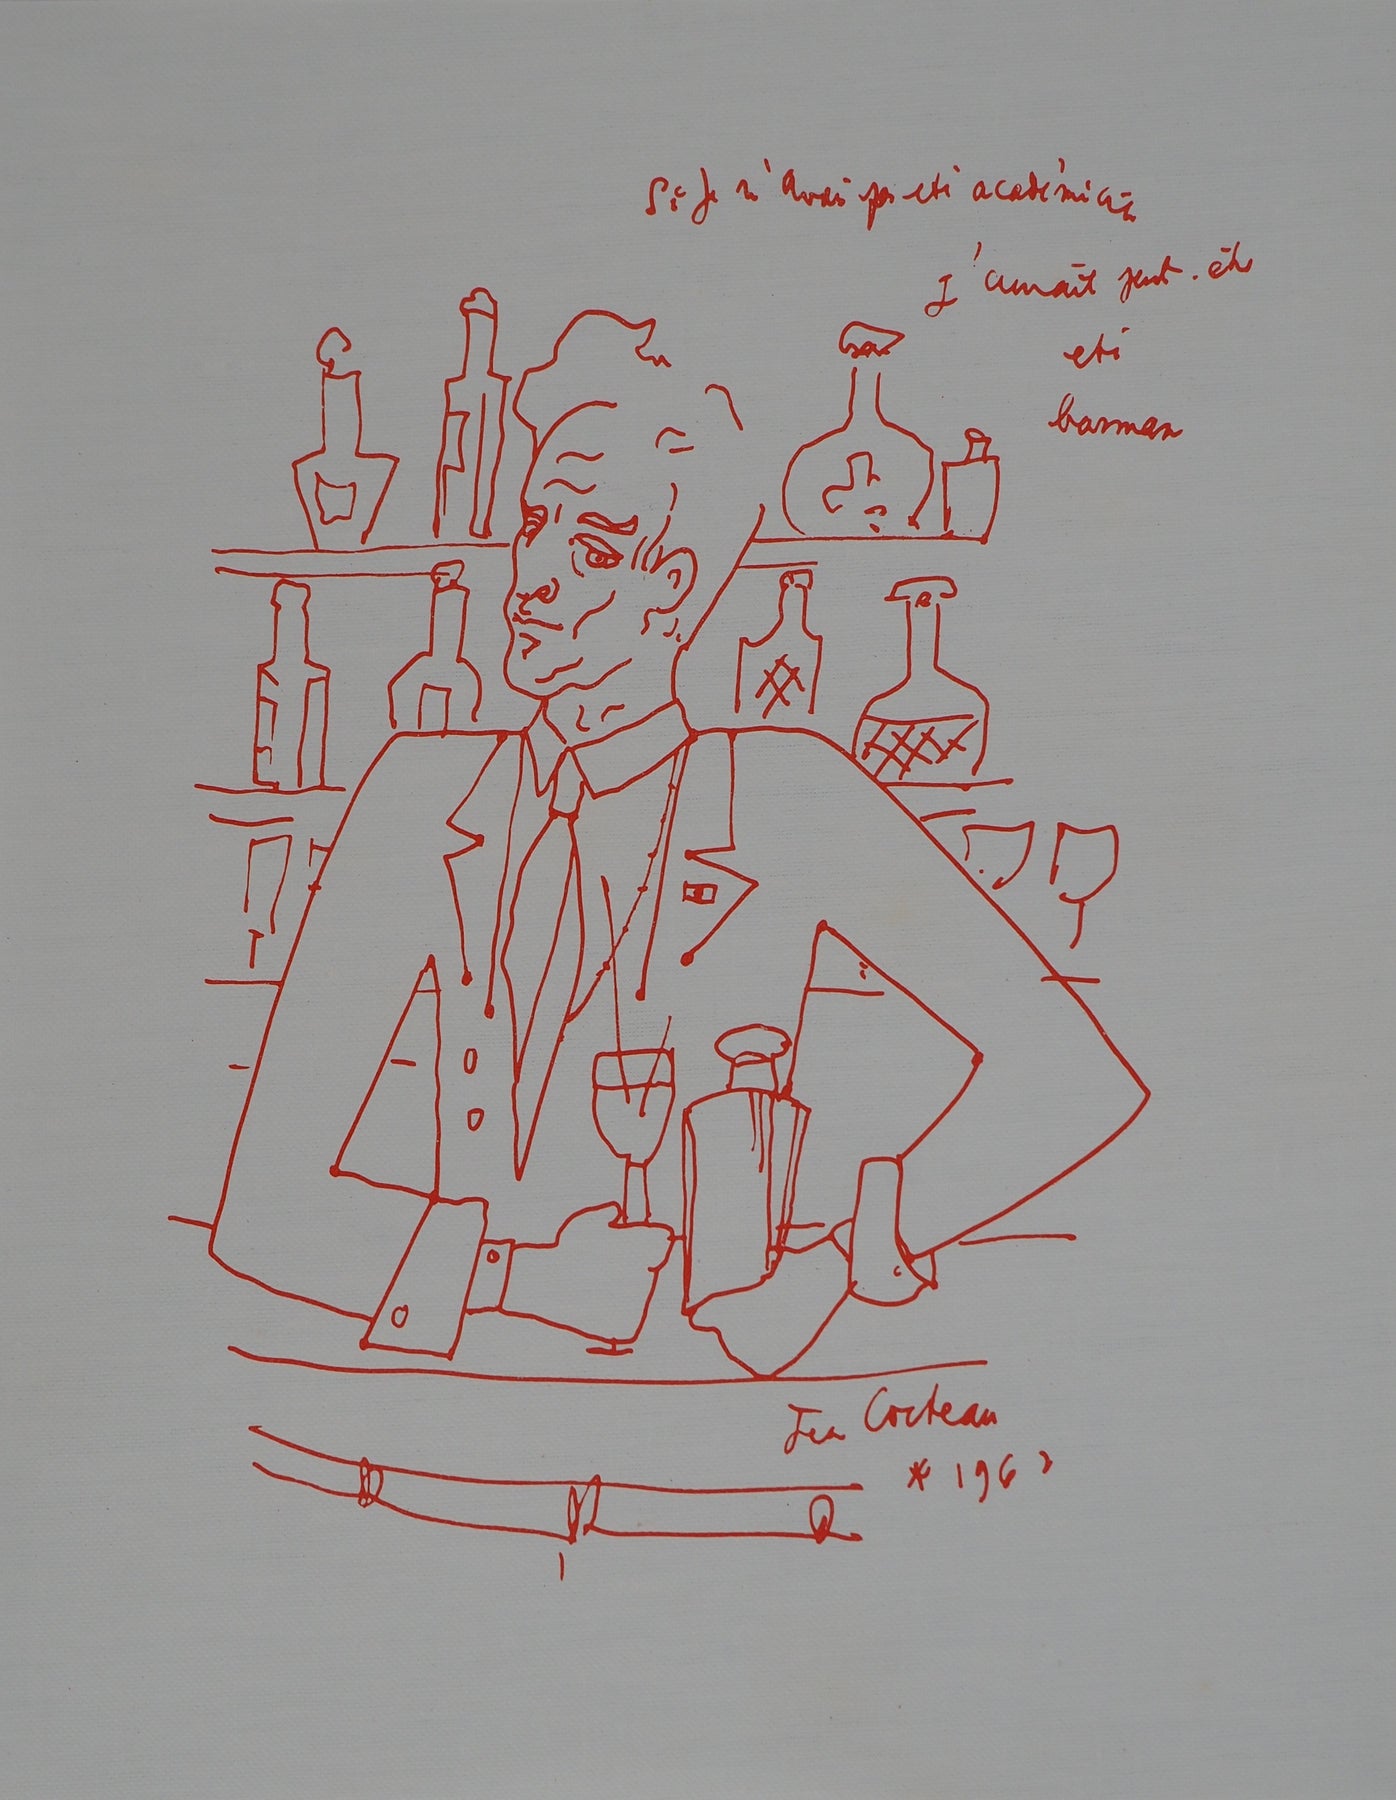 Si Je n'avais pas eté académicien
J'aurait peut-être
eté
barman
Jean Cocteau
* 196